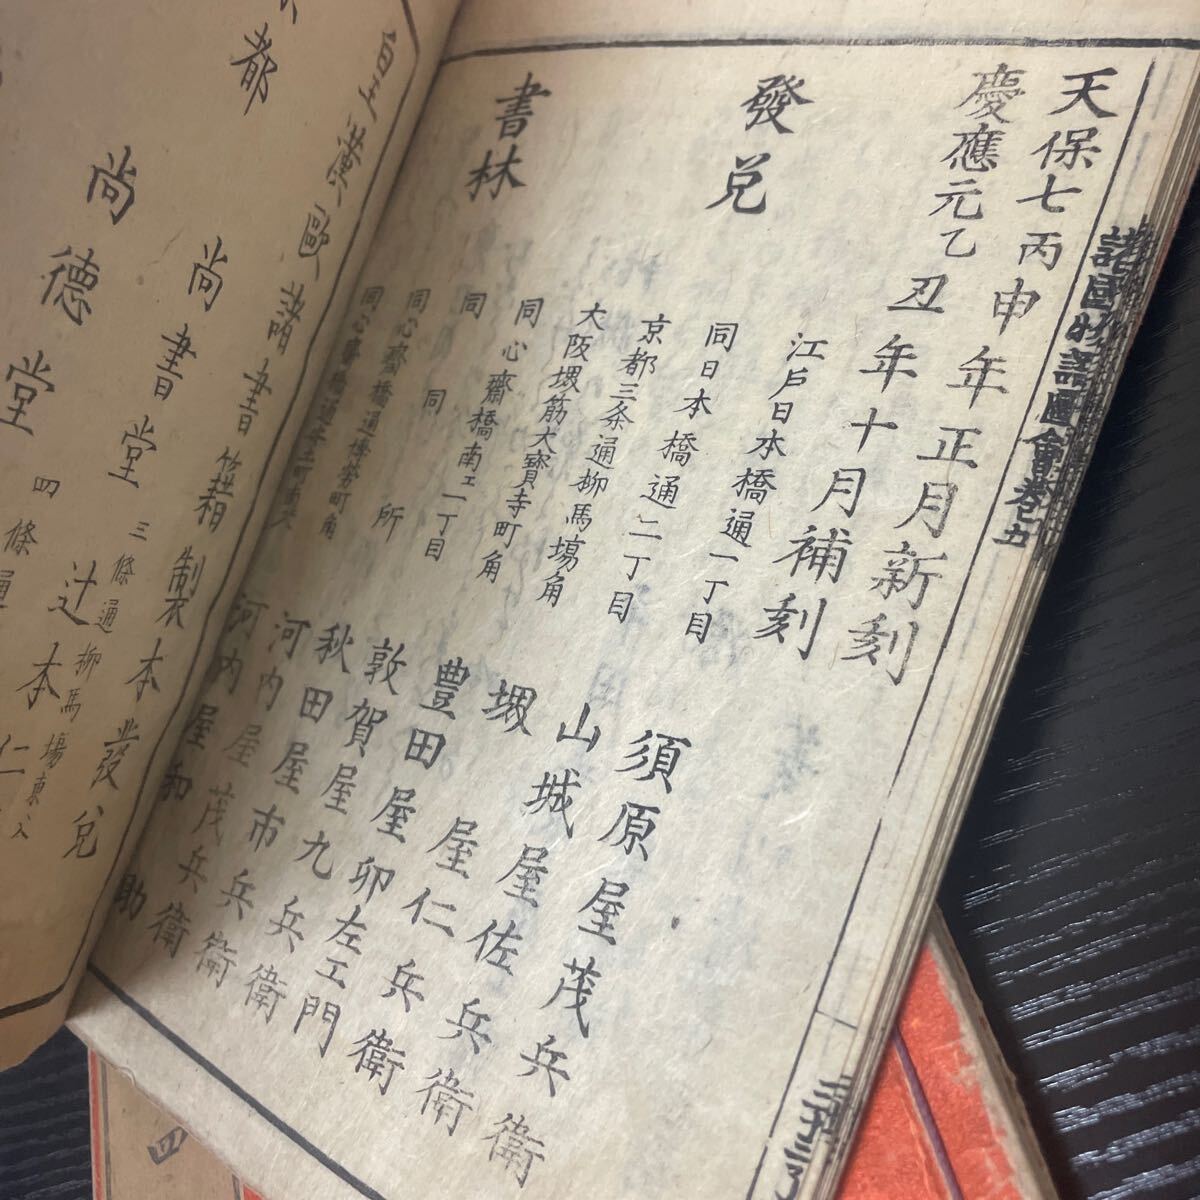 諸國物語圖會巻五
天保七丙申年正月新刻
慶應元乙丑年十月補刻
發兌
書林
江戸日本橋通一丁目 須原屋茂兵衛
同日本橋通二丁目 山城屋佐兵衛
京都三条通柳馬塲角 堺屋仁兵衛
大阪堺筋大寶寺町角 豊田屋卯左エ門
同心齋橋南エ一丁目 敦賀屋九兵衛
同 同 所 秋田屋市兵衛
同心齋橋通博労町角 河内屋茂兵衛
同心齋橋通安土町南入 河内屋和助
漢歐諸書籍製本發兌
尚書堂
三條通柳馬場東入
辻本仁
都
尚德堂
四條通
四